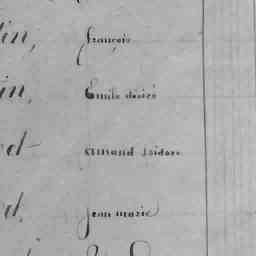 tin, françois
in, Emile désiré
d- armand isidore
d, jean marie